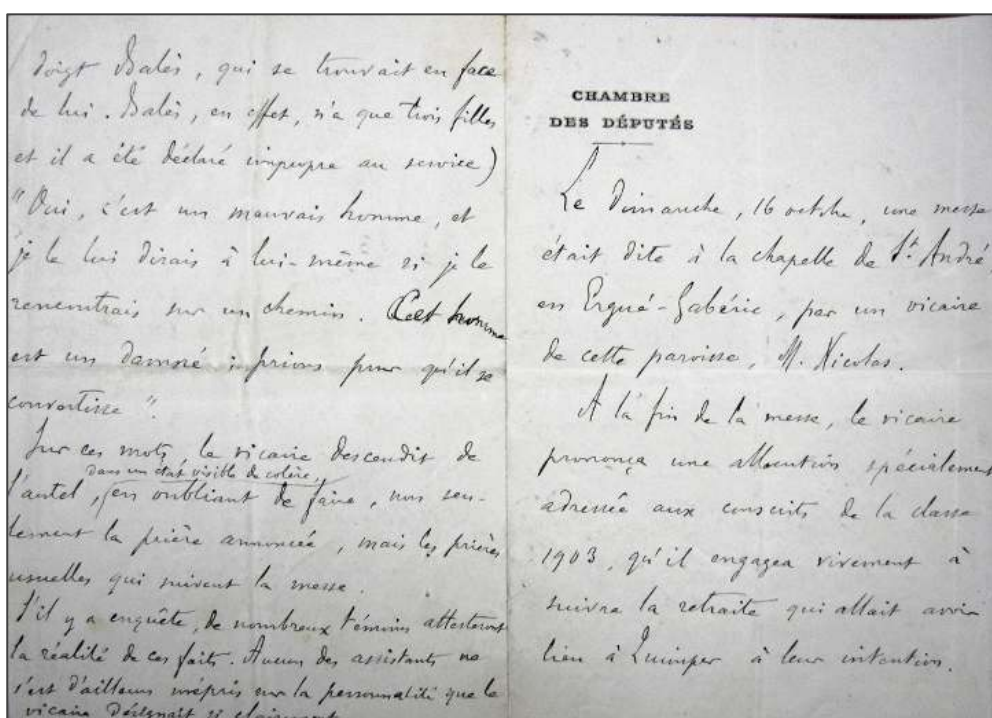 doigt Balès, qui se trouvait en face
de lui. Balès, en effet, n'a que trois filles
et il a été déclaré impropre au service)
"Oui, c'est un mauvais homme, et
je le lui dirais à lui-même si je le
rencontrais sur un chemin. Cet homme
est un damné ; prions pour qu'il se
convertisse".
Sur ces mots, le vicaire descendit de
dans un état visible de colère,
l'autel, en oubliant de faire, non seu-
lement la prière annoncée, mais les prières
usuelles qui suivent la messe.
S'il y a enquête, de nombreux témoins attesteront
la réalité de ces faits. Aucun des assistants ne
s'est d'ailleurs mépris sur la personnalité que le
vicaire désignait si clairement
CHAMBRE
DES DÉPUTÉS
Le Dimanche, 16 octobre, une messe
était dite à la chapelle de St. André,
en Ergué-Gabéric, par un vicaire
de cette paroisse, M. Nicolas.
A la fin de la messe, le vicaire
prononça une allocution spécialement
adressée aux conscrits de la classe
1903, qu'il engagea vivement à
suivre la retraite qui allait avoir
lieu à Quimper à leur intention.